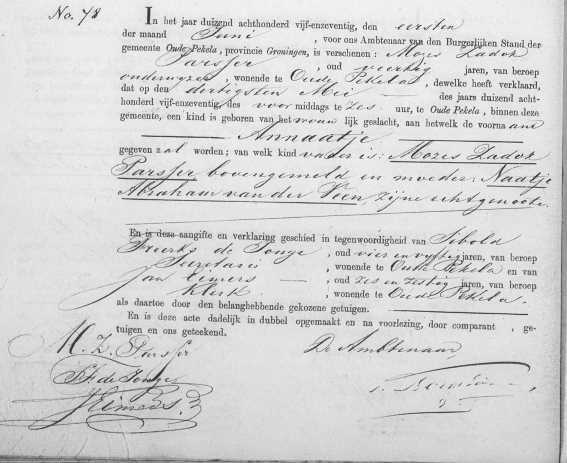 No. 78
In het jaar duizend achthonderd vijf-enzeventig, den eersten
der maand Juni, voor ons Ambtenaar van den Burgerlijken Stand der
gemeente Oude Pekela, provincie Groningen, is verschenen: Mozes Zadok
Parsser, oud veertig jaren, van beroep
onderwyzer, wonende te Oude Pekela, dewelke heeft verklaard,
dat op den dertigsten Mei des jaars duizend acht-
honderd vijf-enzeventig, des voormiddags te zes uur, te Oude Pekela, binnen deze
gemeente, een kind is geboren van het vrouwlijk geslacht, aan hetwelk de voorname
Annaatje
gegeven zal worden; van welk kind vader is: Mozes Zadok
Parsser bovengemeld en moeder: Naatje
Abraham van der Veen, zijne echtgenoote.
En is deze aangifte en verklaring geschied in tegenwoordigheid van Sibold
Freerks de Jonge, oud vier en vyftig jaren, van beroep
Secretaris, wonende te Oude Pekela en van
Jan Eimers, oud zes en zestig jaren, van beroep
Klerk, wonende te Oude Pekela,
als daartoe door den belanghebbende gekozene getuigen.
En is deze acte dadelijk in dubbel opgemaakt en na voorlezing, door comparant, ge-
tuigen en ons geteekend.
M. Z. Parsser
De Ambtenaar
S F de Jonge
J Eimers